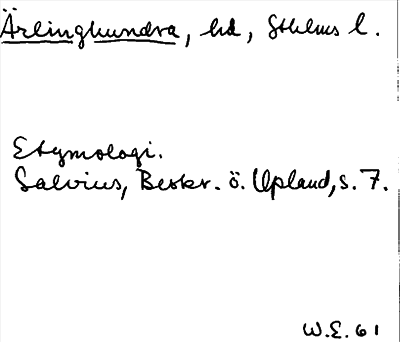 Ärlinghundra, hd, Sthlms l.
Etymologi.
Salvius, Beskr. ö. Upland, s. 7.
W.E. 61